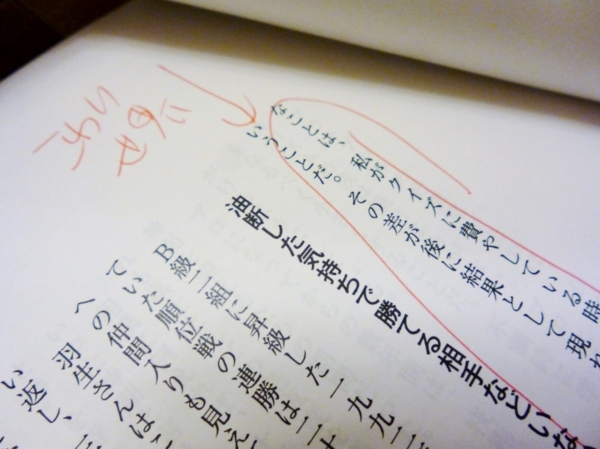 なことは、私がクイズに費やしている時
いうことだ。その差が後に結果として現
油断した気持ちで勝てる相手などいな
B級二組に昇級した一九九二
ていた順位戦の連勝は二十
への仲間入りも見
羽生さんは
い返し、